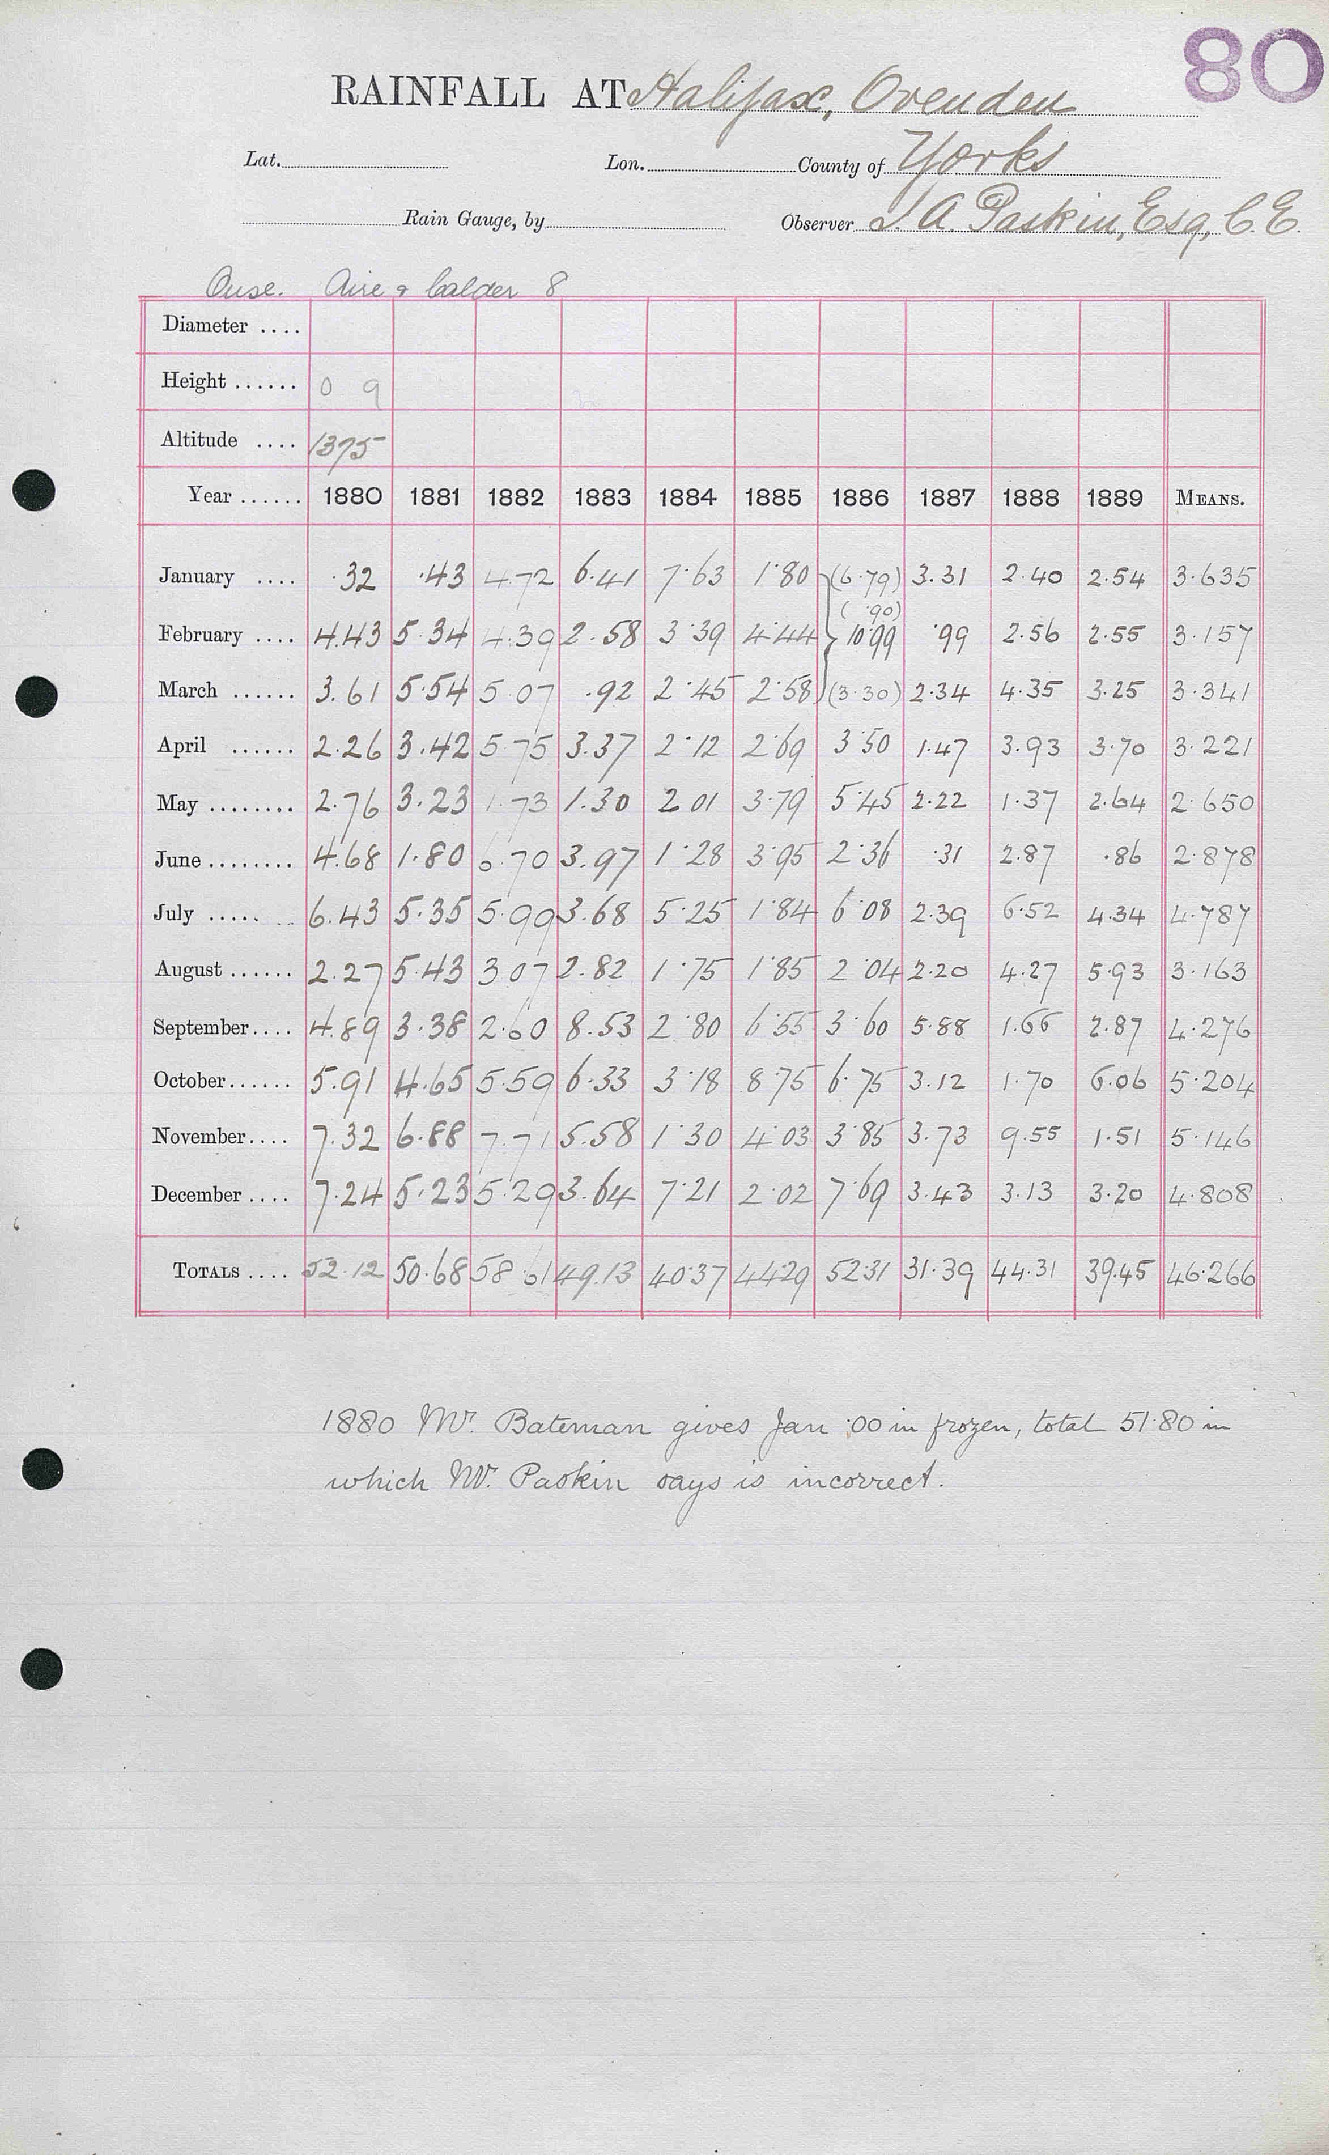 80
RAINFALL AT Halifax, Ovenden
Lat. Lon. County of Yorks
Rain Gauge, by Observer J. A. Paskin, Esq, C.E.
Ouse. Aire & Calder 8
Diameter ....
Height ...... 0 9
Altitude .... 1375
Year ...... 1880 1881 1882 1883 1884 1885 1886 1887 1888 1889 MEANS.
January .... .32 .43 4.72 6.41 7.63 1.80 (6.79) 3.31 2.40 2.54 3.635
(.90)
February .... 4.43 5.34 4.39 2.58 3.39 4.44 10.99 .99 2.56 2.55 3.157
March ...... 3.61 5.54 5.07 .92 2.45 2.58 (3.30) 2.34 4.35 3.25 3.341
April ...... 2.26 3.42 5.75 3.37 2.12 2.69 3.50 1.47 3.93 3.70 3.221
May ........ 2.76 3.23 1.73 1.30 2.01 3.79 5.45 2.22 1.37 2.64 2.650
June ........ 4.68 1.80 6.70 3.97 1.28 3.95 2.36 .31 2.87 .86 2.878
July ..... 6.43 5.35 5.99 3.68 5.25 1.84 6.08 2.39 6.52 4.34 4.787
August ...... 2.27 5.43 3.07 2.82 1.75 1.85 2.04 2.20 4.27 5.93 3.163
September.... 4.89 3.38 2.60 8.53 2.80 6.55 3.60 5.88 1.66 2.87 4.276
October...... 5.91 4.65 5.59 6.33 3.18 8.75 6.75 3.12 1.70 6.06 5.204
November.... 7.32 6.88 7.71 5.58 1.30 4.03 3.85 3.73 9.55 1.51 5.146
December .... 7.24 5.23 5.29 3.64 7.21 2.02 7.69 3.43 3.13 3.20 4.808
TOTALS .... 52.12 50.68 58.61 49.13 40.37 44.29 52.31 31.39 44.31 39.45 46.266
1880 Mr. Bateman gives Jan .00 in frozen, total 51.80 in
which Mr. Paskin says is incorrect.